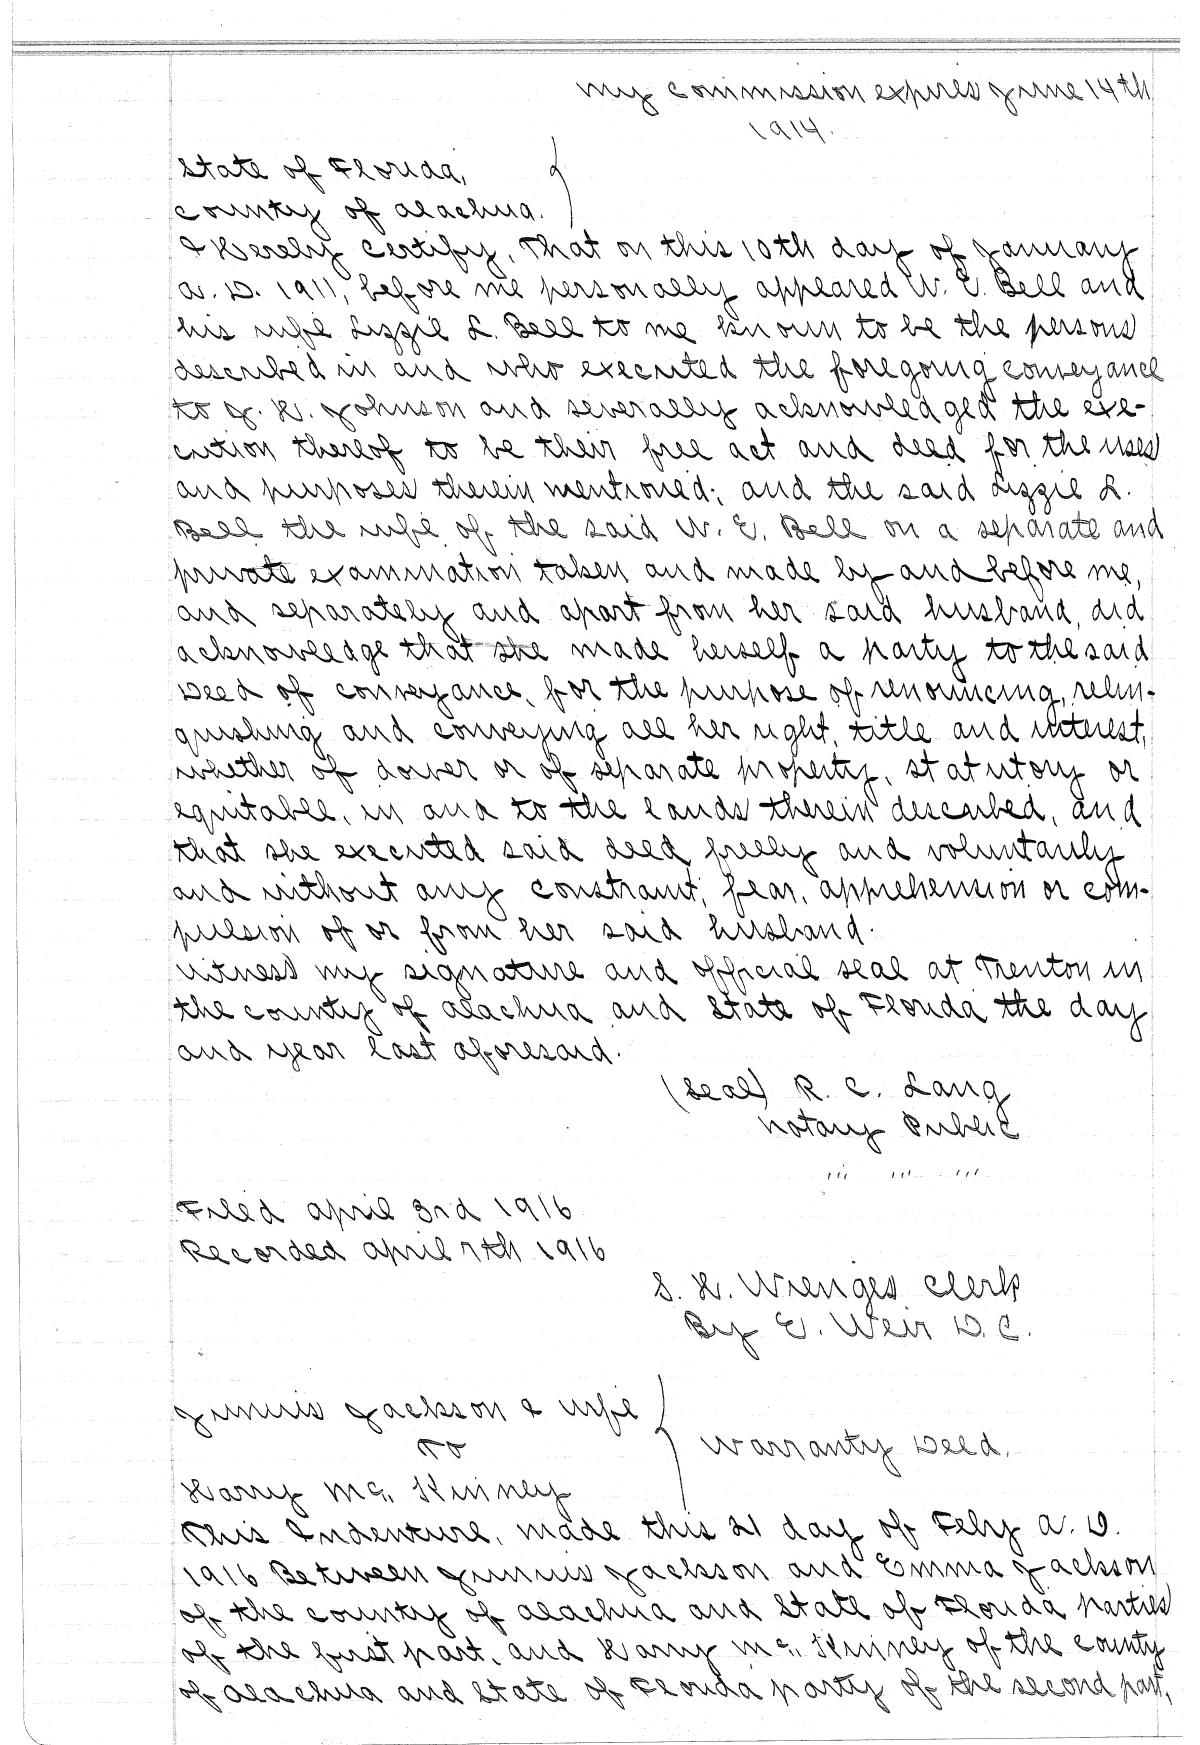 My commission expires June 14th
1914.
State of Florida,
County of Alachua.
I Hereby Certify, That on this 10th day of January
A. D. 1911, before me personally appeared W. E. Bell and
his wife Lizzie L. Bell to me known to be the persons
described in and who executed the foregoing conveyance
to J. H. Johnson and severally acknowledged the exe-
cution thereof to be their free act and deed for the uses
and purposes therein mentioned; and the said Lizzie L.
Bell the wife of the said W. E. Bell on a separate and
private examination taken and made by and before me,
and separately and apart from her said husband, did
acknowledge that she made herself a party to the said
Deed of conveyance, for the purpose of renouncing, relin-
quishing and conveying all her right, title and interest,
whether of dower or of separate property, statutory or
equitable, in and to the lands therein described, and
that she executed said deed freely and voluntarily
and without any constraint, fear, apprehension or com-
pulsion of or from her said husband.
Witness my signature and official seal at Trenton in
the county of Alachua and State of Florida the day
and year last aforesaid.
(Seal) R. C. Lang
Notary Public
Filed April 3rd 1916
Recorded April 7th 1916
S. H. Wienges Clerk
By E. Weir D. C.
Junius Jackson & wife
To
Warranty Deed.
Harry Mc. Kinney
This Indenture, made this 21 day of Feby A. D.
1916 Between Junius Jackson and Emma Jackson
of the county of Alachua and State of Florida parties
of the first part, and Harry Mc. Kinney of the county
of Alachua and State of Florida party of the second part,